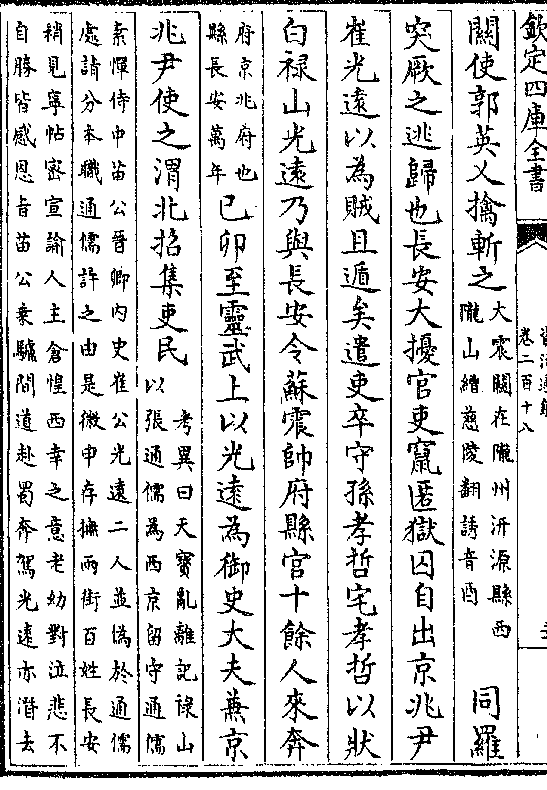 欽定四庫全書
資治通鑑
卷二百十八
關使郭英乂擒斬之
大震關在隴州汧源縣西
隴山繒慈陵翻誘音酉
同羅
突厥之逃歸也長安大擾官吏竄匿獄囚自出京兆尹
崔光遠以為賊且遁矣遣吏卒守孫孝哲宅孝哲以狀
白祿山光遠乃與長安令蘇震帥府縣官十餘人來奔
府京兆府也
縣長安萬年
己卯至靈武上以光遠為御史大夫兼京
兆尹使之渭北招集吏民
考異曰天寶亂離記祿山
以張通儒為西京留守通儒
素憚侍中苗公晉卿内史崔公光遠二人並偽於通儒
處請分本職通儒許之由是微申存撫兩街百姓長安
稍見寧帖密宣諭人主倉惶西幸之意老幼對泣悲不
自勝皆感恩旨苗公乗驢間道赴蜀奔駕光遠亦潛去